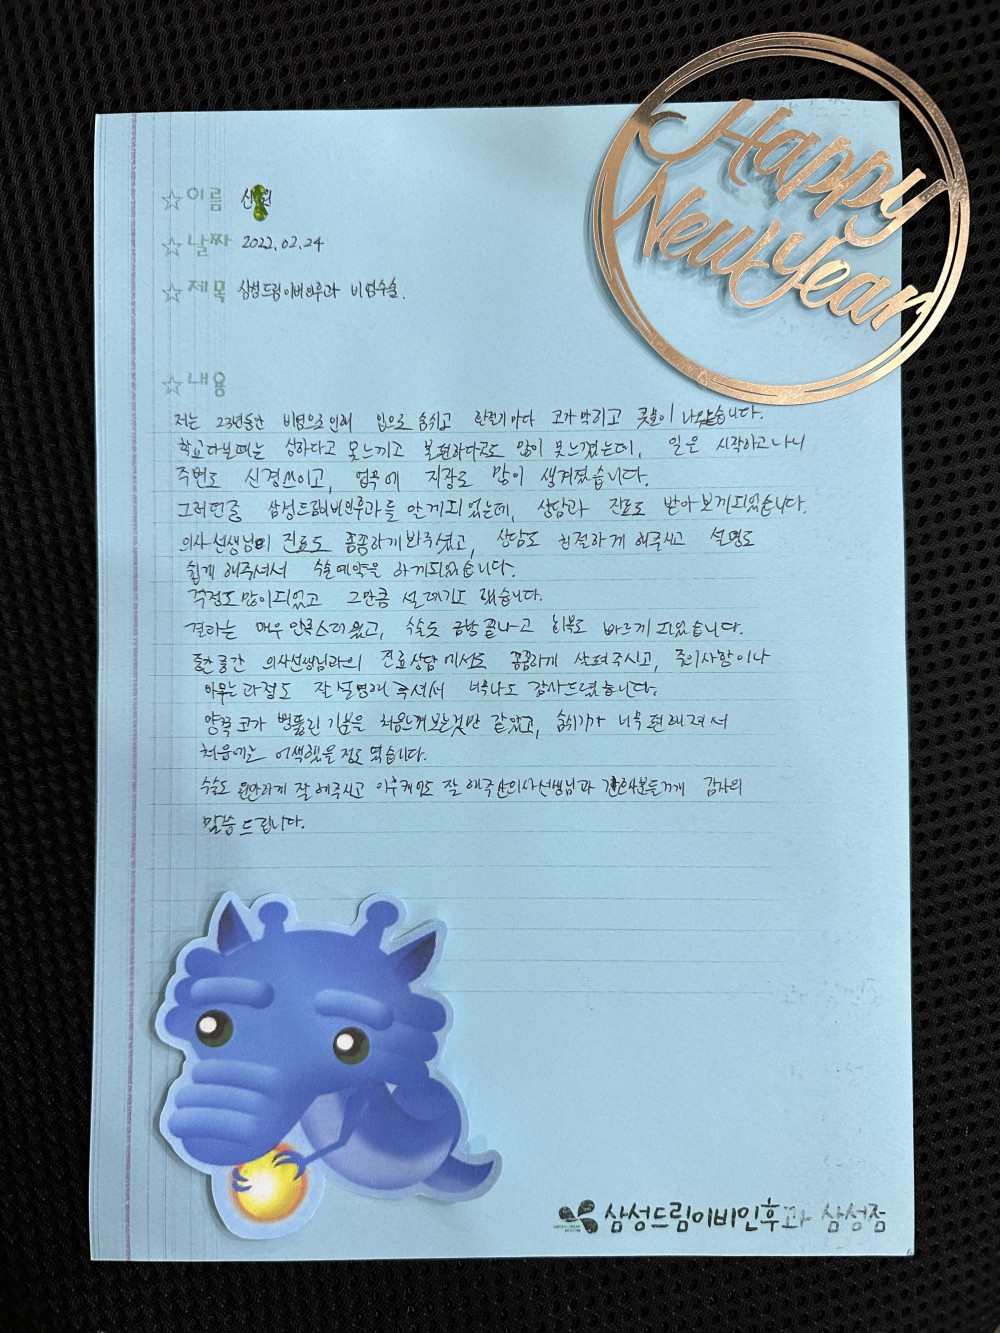 Happy
New Year
☆ 이름 신 원
☆ 날짜 2022.02.24
☆ 제목 삼성드림이비인후과 비염수술.
☆ 내용
저는 23년동안 비염으로 인해 입으로 숨쉬고 환절기마다 코가 막히고 콧물이 나왔습니다.
학교다닐때는 심하다고 못느끼고 불편하다고도 많이 못느꼈는데, 일을 시작하고나니
주변도 신경쓰이고, 업무에 지장도 많이 생겨졌습니다.
그러던중 삼성드림이비인후과를 알게되었는데, 상담과 진료도 받아보게되었습니다.
의사선생님이 진료도 꼼꼼하게봐주셨고, 상담도 친절하게 해주시고 설명도
쉽게 해주셔서 수술예약을 하게되었습니다.
걱정도많이되었고 그만큼 설레기도 했습니다.
결과는 매우 만족스러웠고, 수술도 금방 끝나고 회복도 빠르게 되었습니다.
중간중간 의사선생님과의 진료상담에서도 꼼꼼하게 살펴주시고, 주의사항이나
아무는과정도 잘설명해 주셔서 너무나도 감사드렸습니다.
양쪽 코가 뻥뚫린 기분을 처음느껴보는것만 같았고, 숨쉬기가 너무 편해져서
처음에는 어색했을 정도 였습니다.
수술도 원만하게 잘해주시고 이후케어도 잘 해주신의사선생님과 간호사분들께 감사의
말씀 드립니다.
삼성드림이비인후과 삼성점